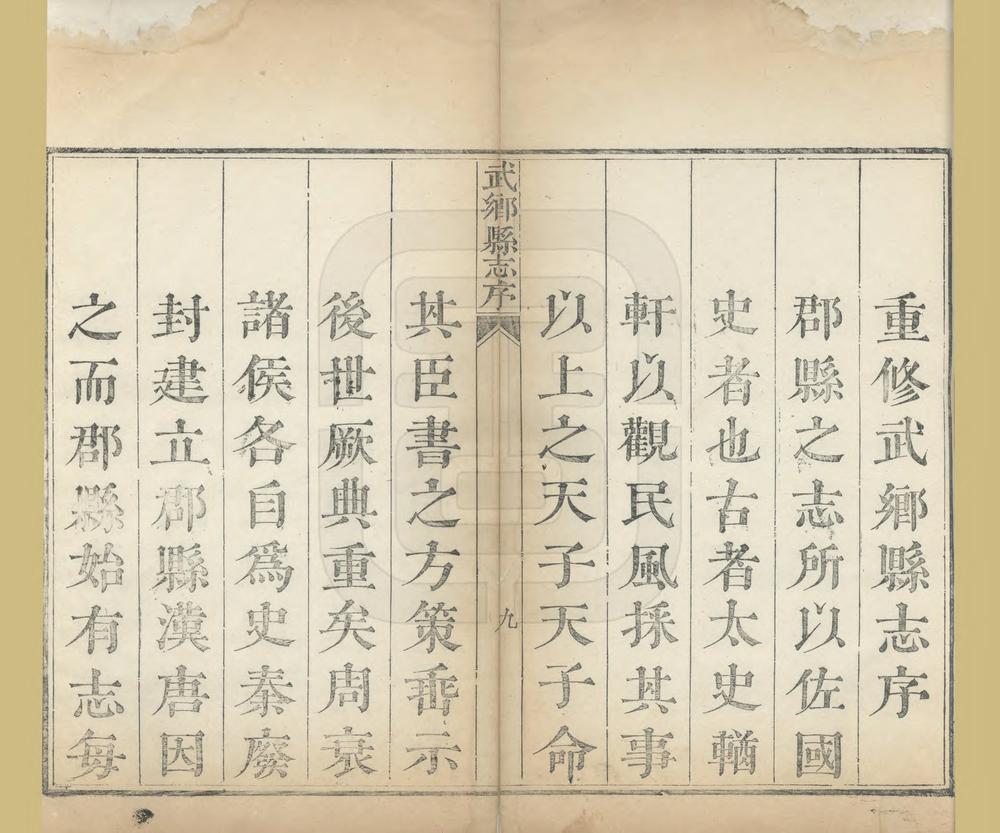 重修武鄉縣志序
郡縣之志所以佐國
史者也古者太史輶
軒以觀民風採其事
以上之天子天子命
武鄉縣志序
九
其臣書之方策垂示
後世厥典重矣周衰
諸侯各自為史秦廢
封建立郡縣漢唐因
之而郡縣始有志每